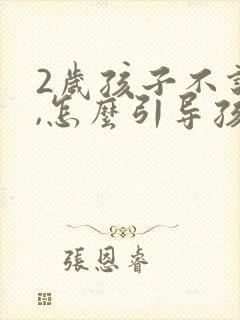 2歲孩子不
,怎麼引导孩
張恩睿